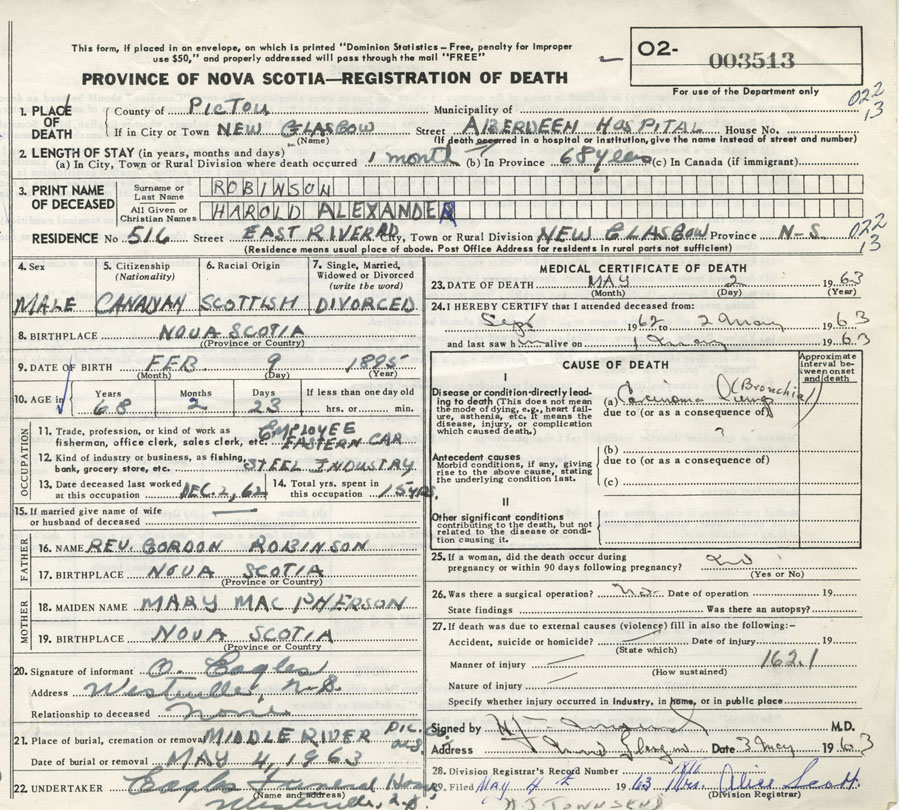 This form, if placed in an envelope, on which is printed "Dominion Statistics – Free, penalty for improper
use $50," and properly addressed will pass through the mail "FREE"
PROVINCE OF NOVA SCOTIA—REGISTRATION OF DEATH
02- 003513
For use of the Department only
022
13
1. PLACE OF DEATH
County of PICTOU Municipality of
If in City or Town NEW GLASGOW Street ABERDEEN HOSPITAL House No.
(Name) (If death occurred in a hospital or institution, give the name instead of street and number)
2. LENGTH OF STAY (in years, months and days)
(a) In City, Town or Rural Division where death occurred 1 month (b) In Province 68 years (c) In Canada (if immigrant)
3. PRINT NAME OF DECEASED
Surname or Last Name ROBINSON
All Given or Christian Names HAROLD ALEXANDER
RESIDENCE No. 516 Street EAST RIVER RD. City, Town or Rural Division NEW GLASGOW Province N-S
022
13
(Residence means usual place of abode. Post Office Address for residents in rural parts not sufficient)
4. Sex
MALE
5. Citizenship (Nationality)
CANADIAN
6. Racial Origin
SCOTTISH
7. Single, Married, Widowed or Divorced (write the word)
DIVORCED
8. BIRTHPLACE NOVA SCOTIA
(Province or Country)
9. DATE OF BIRTH FEB 9 1895
(Month) (Day) (Year)
10. AGE in Years Months Days If less than one day old
68 2 23 hrs. or min.
OCCUPATION
11. Trade, profession, or kind of work as fisherman, office clerk, sales clerk, etc. EMPLOYEE EASTERN CAR
12. Kind of industry or business, as fishing, bank, grocery store, etc. STEEL INDUSTRY
13. Date deceased last worked at this occupation DEC. 2, 62
14. Total yrs. spent in this occupation 15 YRS.
15. If married give name of wife or husband of deceased —
FATHER
16. NAME REV. GORDON ROBINSON
17. BIRTHPLACE NOVA SCOTIA
(Province or Country)
MOTHER
18. MAIDEN NAME MARY MACPHERSON
19. BIRTHPLACE NOVA SCOTIA
(Province or Country)
20. Signature of informant O. Eagles
Address Westville, N.S.
Relationship to deceased None
21. Place of burial, cremation or removal MIDDLE RIVER PIC. CO.
Date of burial or removal MAY 4, 1963
22. UNDERTAKER Eagles Funeral Home
(Name and address)
Westville, N.S.
MEDICAL CERTIFICATE OF DEATH
23. DATE OF DEATH MAY 2 1963
(Month) (Day) (Year)
24. I HEREBY CERTIFY that I attended deceased from:
Sept 1962 to 2 May 1963
and last saw him alive on 1963
CAUSE OF DEATH
Approximate interval between onset and death
I
Disease or condition directly leading to death (This does not mean the mode of dying, e.g., heart failure, asthenia, etc. It means the disease, injury, or complication which caused death.)
(a) Carcinoma Lung (Bronchial)
due to (or as a consequence of)
Antecedent causes
Morbid conditions, if any, giving rise to the above cause, stating the underlying condition last.
(b) ?
due to (or as a consequence of)
(c)
II
Other significant conditions
contributing to the death, but not related to the disease or condition causing it.
25. If a woman, did the death occur during pregnancy or within 90 days following pregnancy?
(Yes or No)
26. Was there a surgical operation? No. Date of operation 19
State findings Was there an autopsy?
27. If death was due to external causes (violence) fill in also the following:-
Accident, suicide or homicide? Date of injury 19
(State which)
Manner of injury 162.1
(How sustained)
Nature of injury
Specify whether injury occurred in industry, in home, or in public place
Signed by M.D.
Address New Glasgow Date 3 May 1963
28. Division Registrar's Record Number
29. Filed MAY 4th 1963 Mrs. Alice Scott
(Division Registrar)
N J TOWNSEND